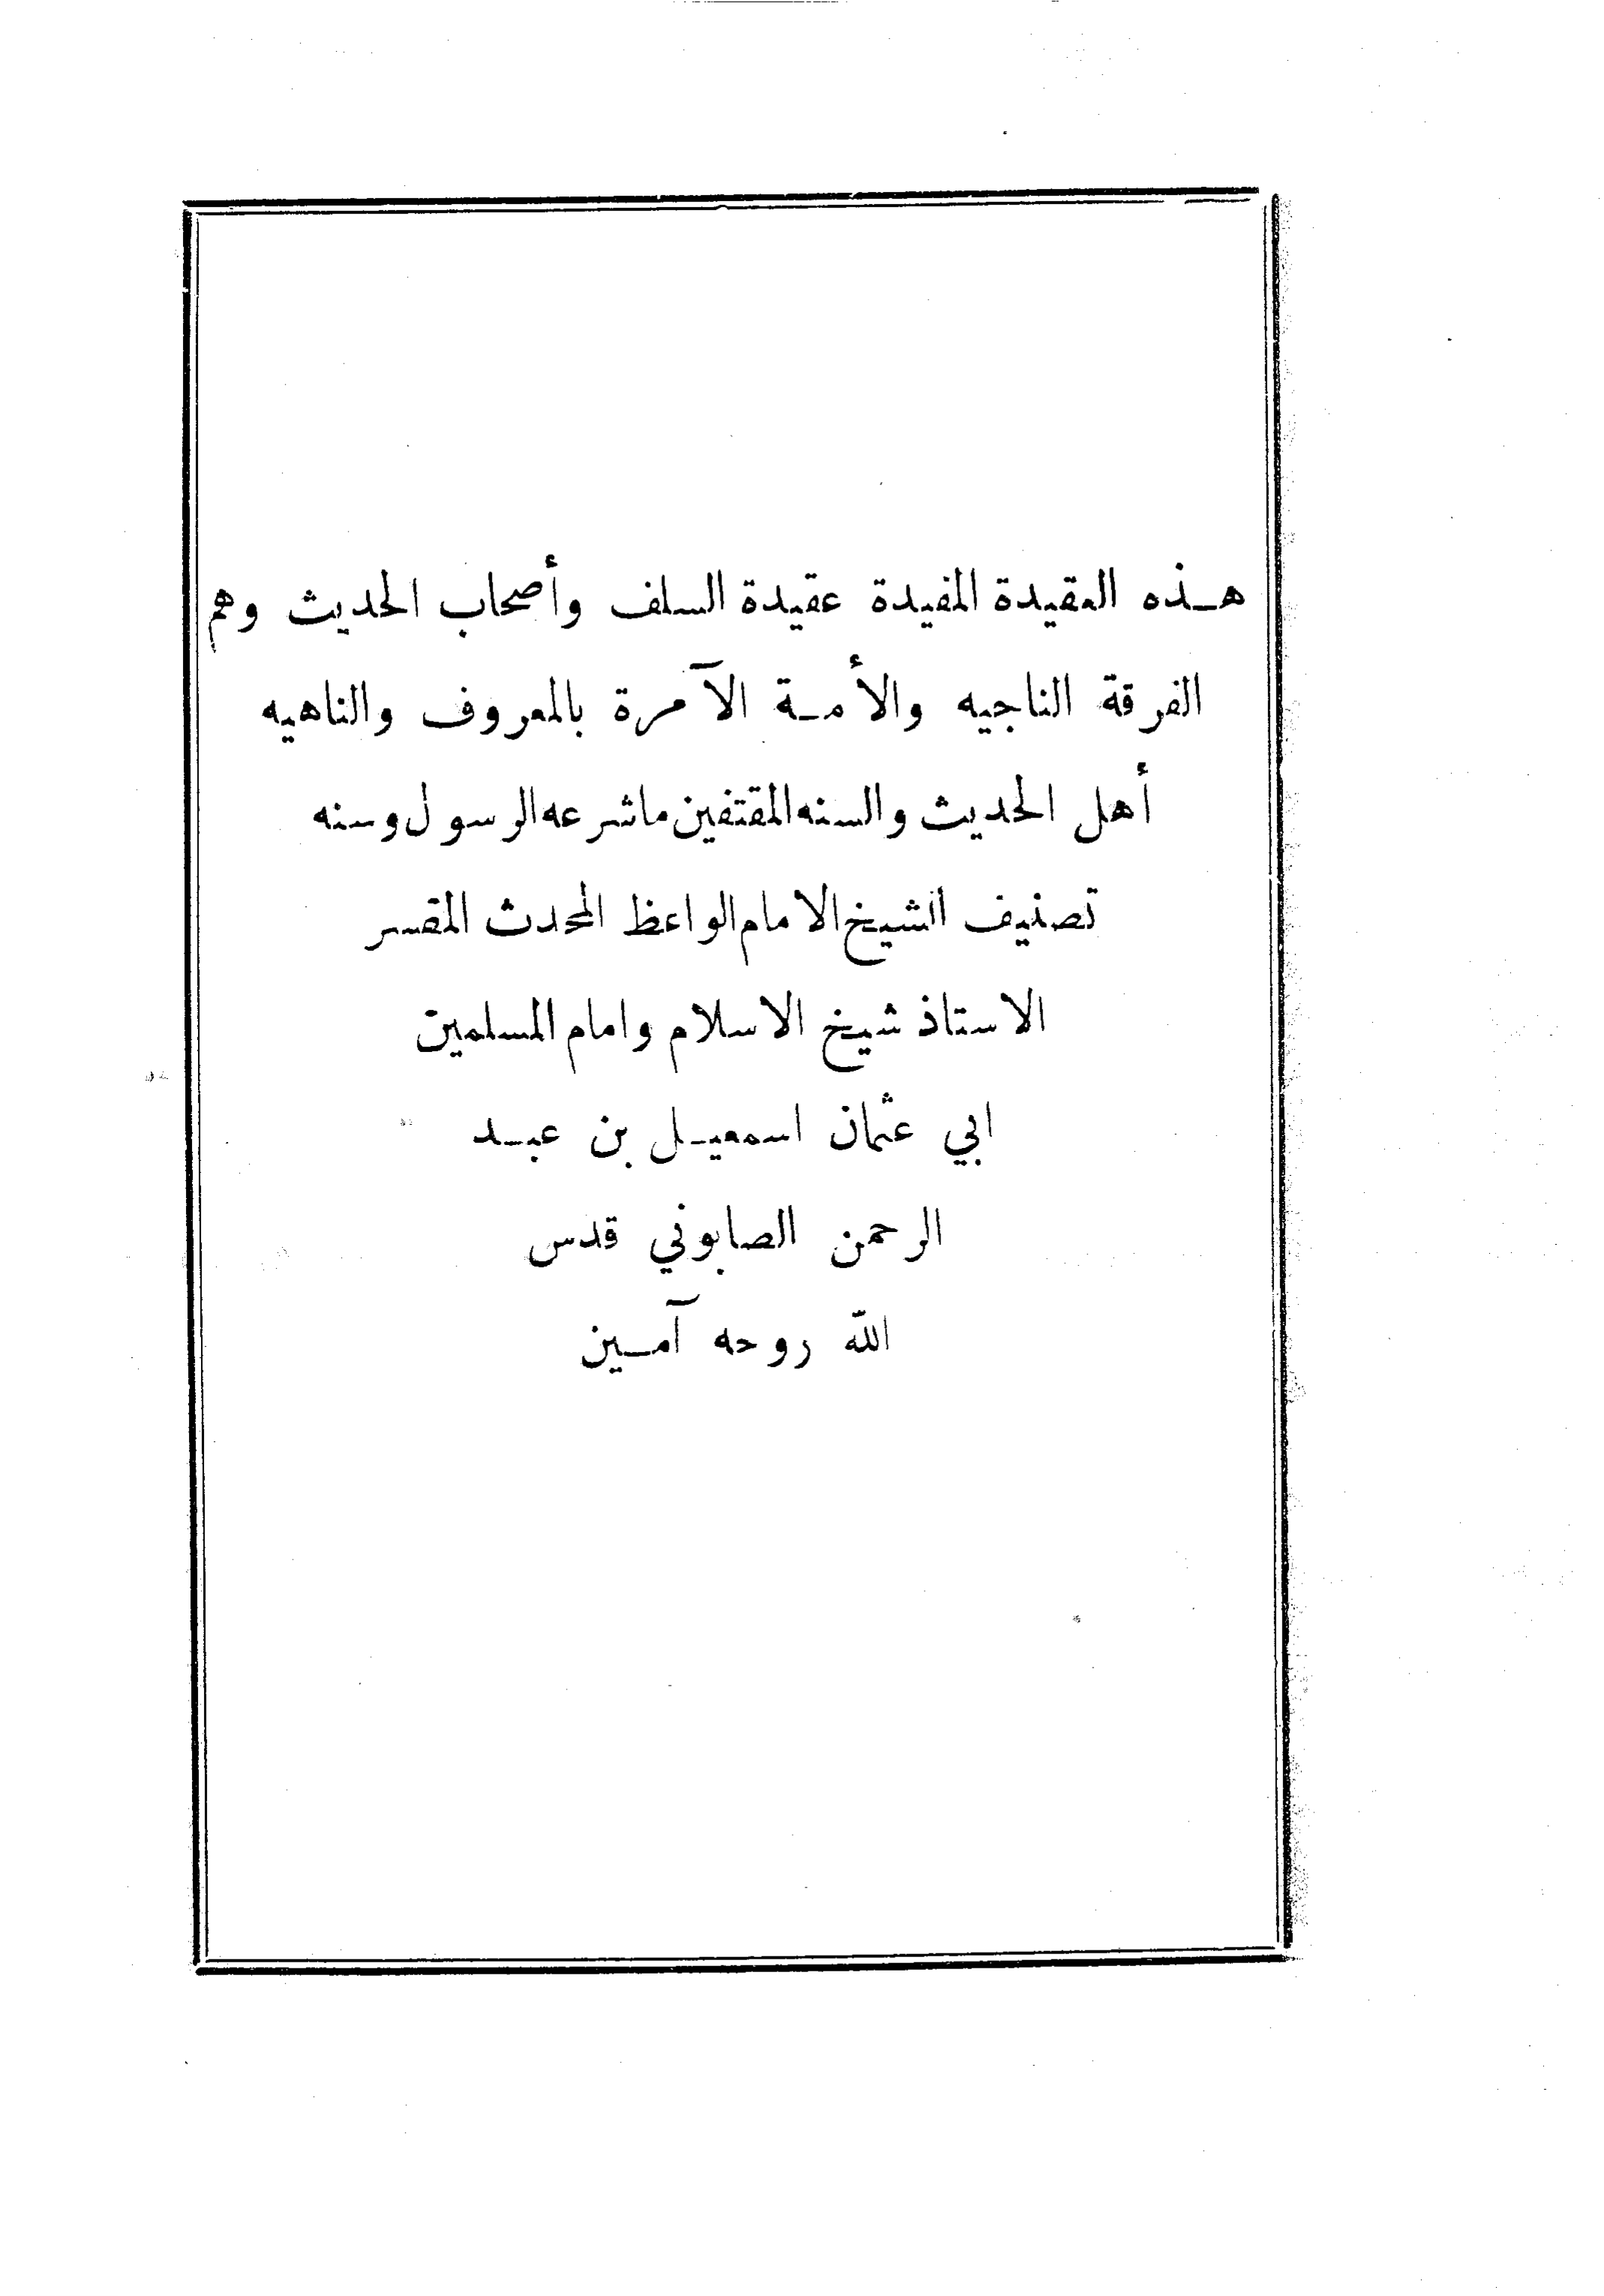 هـذه العقيدة المفيدة عقيدة السلف وأصحاب الحديث وهم
الفرقة الناجيه والأمـة الآمرة بالمعروف والناهيه
أهل الحديث والسنه المقتفين ماشرعه الرسول وسنه
تصنيف الشيخ الامام الواعظ المحدث المفسر
الاستاذ شيخ الاسلام وامام المسلمين
ابي عثمان اسمعيـل بن عبـد
الرحمن الصابوني قدس
الله روحه آمـين